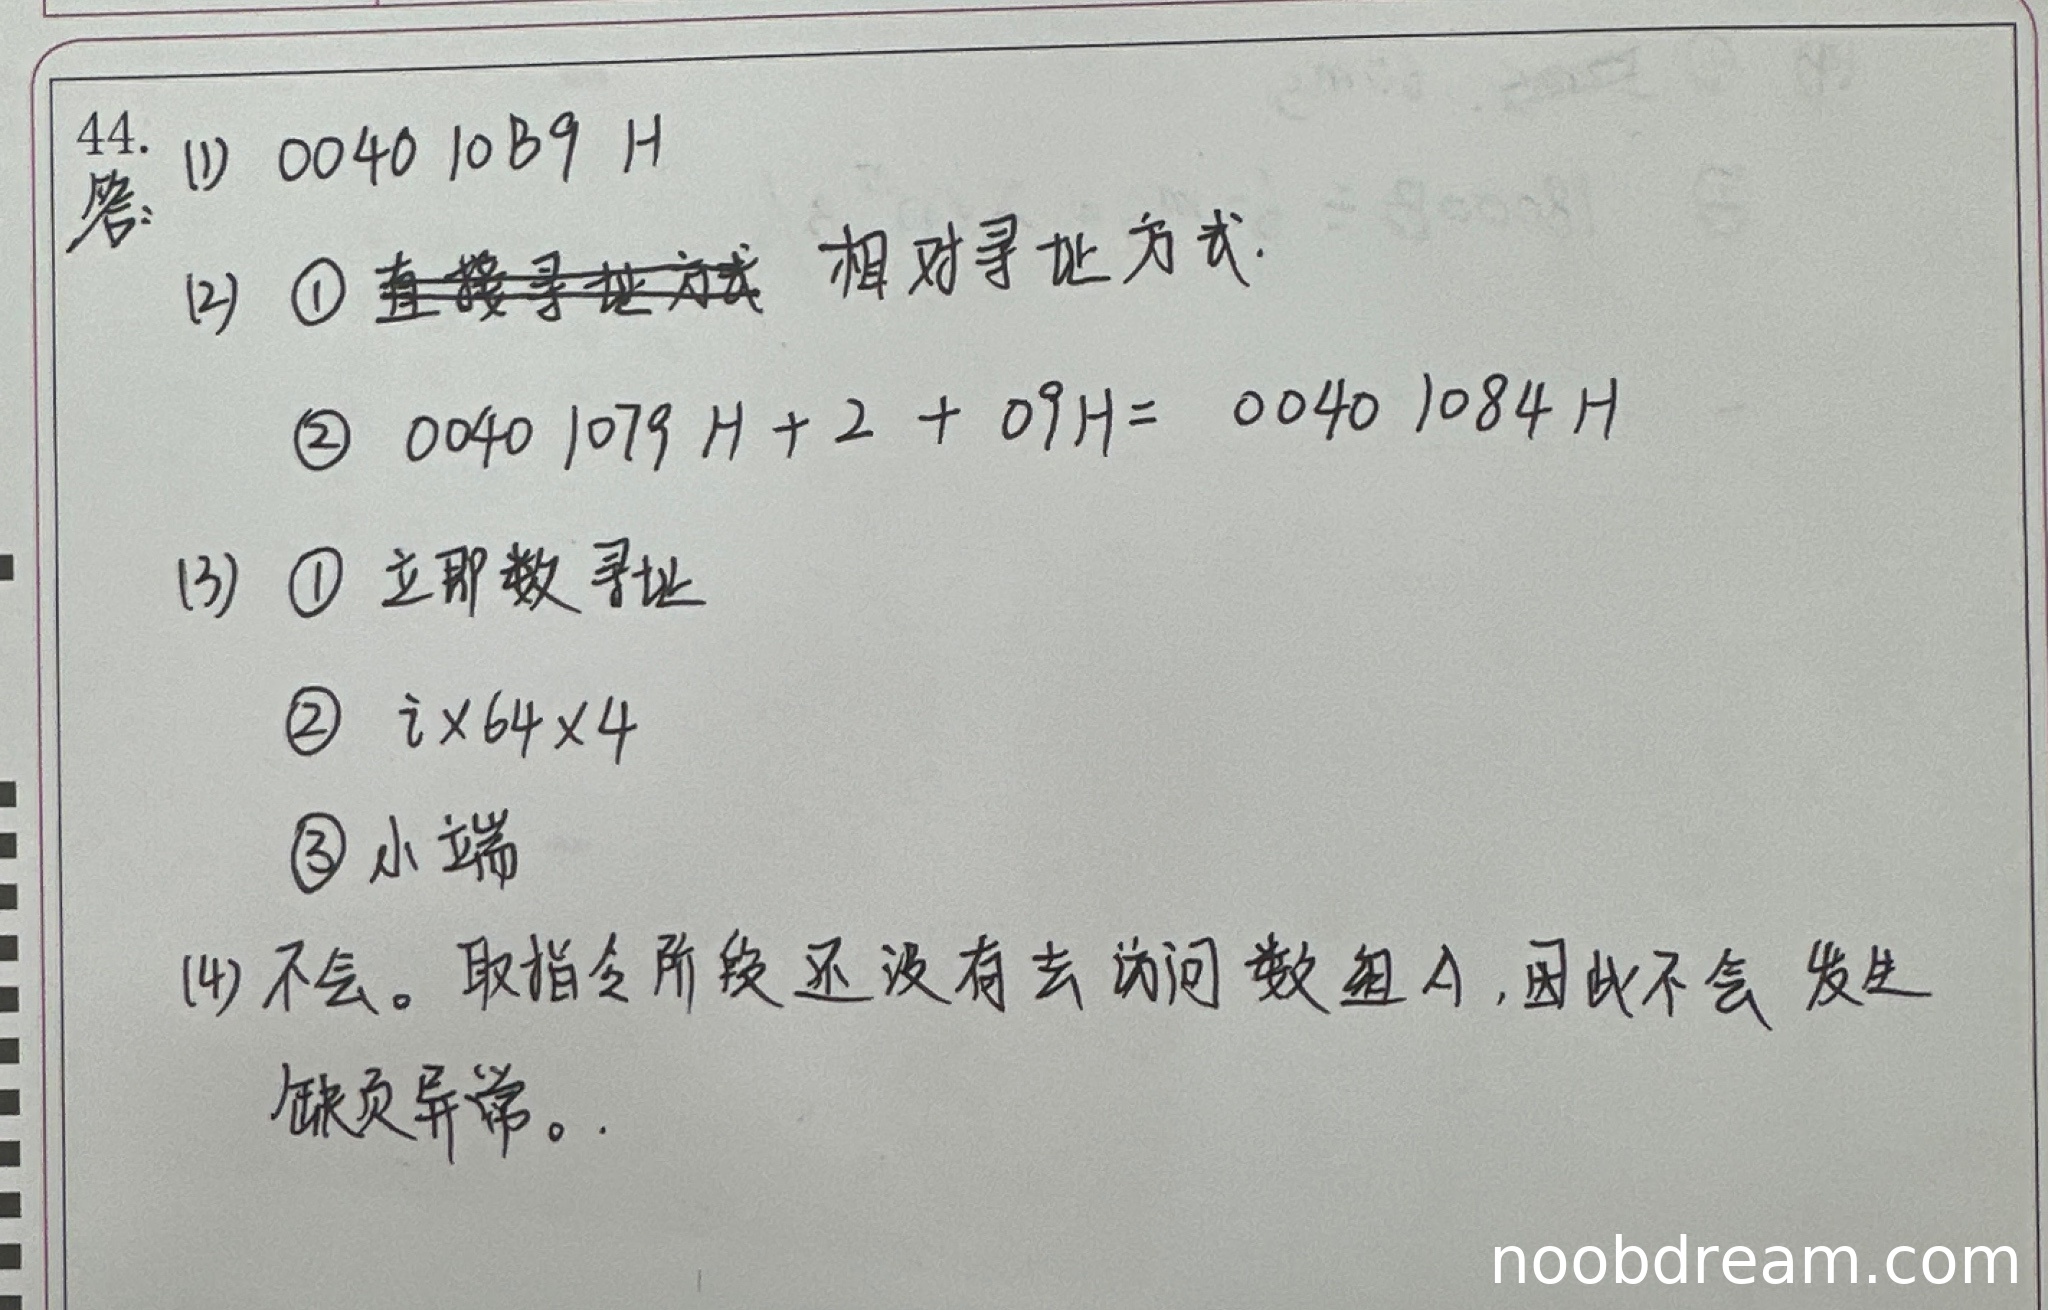 44. (1) 0040 10B9 H
答:
(2) ① 直接寻址方式 相对寻址方式.
② 0040 1079 H + 2 + 09H = 0040 1084 H
(3) ① 立即数寻址
② i×64×4
③ 小端
(4) 不会。取指令阶段还没有去访问数组A,因此不会发生
缺页异常。.
noobdream.com